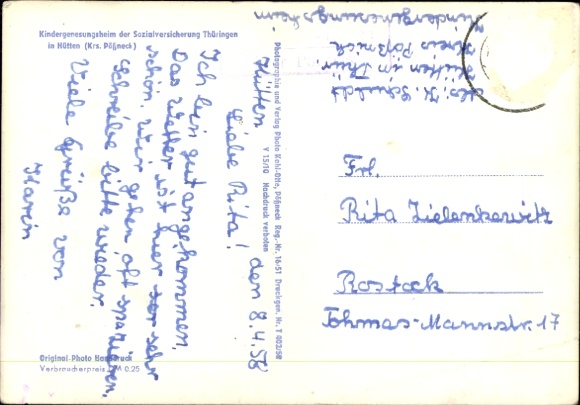 Kindergenesungsheim der Sozialversicherung Thüringen
in Hütten (Krs. Pößneck)
Hütten den 8.4.58
Liebe Rita!
Ich bin gut angekommen.
Das Wetter ist hier sehr
schön. Wir gehen oft spazieren.
Schreibe bitte wieder.
Viele Grüße von
Karin
Original-Photo Handdruck
Verbraucherpreis DM 0.25
Photographie und Verlag Photo Kahl-Otte, Pößneck Reg.-Nr. 16/51 Druckgen. Nr. T 802/58
V 15/10 Nachdruck verboten
Abs.: K.
Hütten in Thür.
Kreis Pößneck
Kindergenesungsheim
Frl.
Rita Zielenkewitz
Rostock
Tohmas-Mannstr. 17